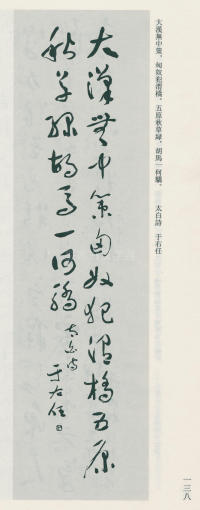 大漢無中策，匈奴犯渭橋，五原秋草綠，胡馬一何驕。　太白詩　于右任
大漢無中策匈奴犯渭橋五原
秋草綠胡馬一何驕
太白詩
于右任
一三八